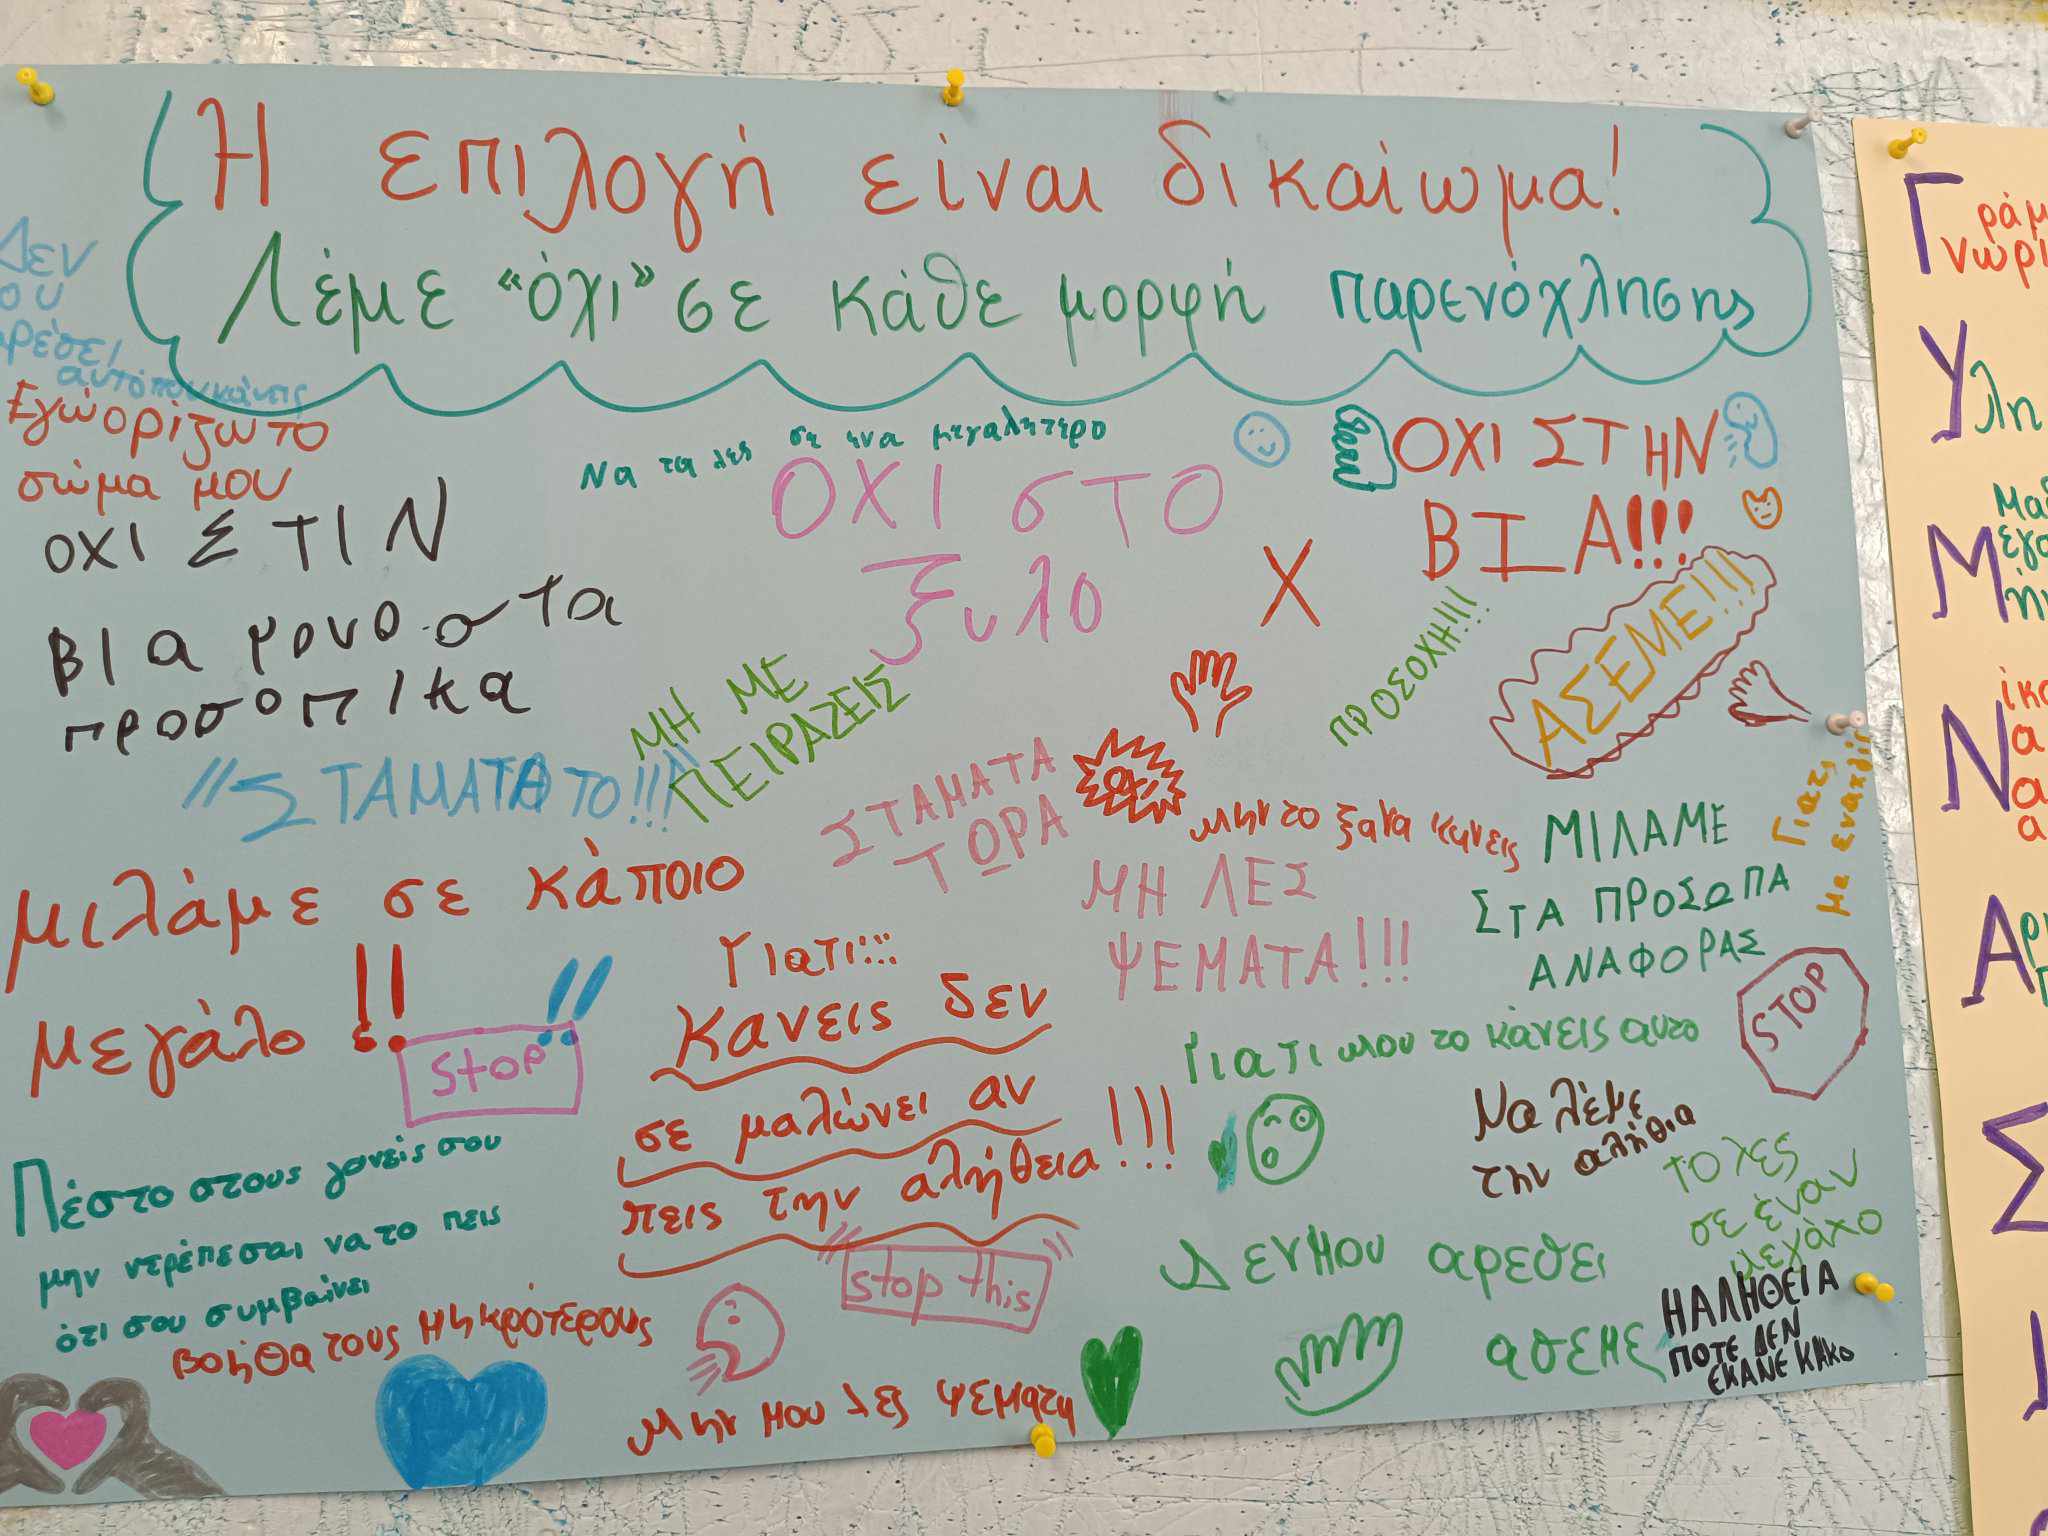 Η επιλογή είναι δικαίωμα!
Λέμε «όχι» σε κάθε μορφή παρενόχλησης
Δεν
ου
αρέσει
αυτό που κάνεις
Εγώ ορίζω το
σώμα μου
ΟΧΙ ΣΤΙΝ
ΒΙα μονο στα
προσοπικα
Να τα λες σε ενα μεγαλητερο
ΟΧΙ στο
ξυλο
ΟΧΙ ΣΤΗΝ
ΒΙΑ!!!
Χ
ΠΡΟΣΟΧΗ!!!
ΑΣΕΜΕ!!!
ΜΗ ΜΕ
ΠΕΙΡΑΖΕΙΣ
ΣΤΑΜΑΤΑ ΤΟ!!!
ΣΤΑΜΑΤΑ
ΤΩΡΑ
μην το ξανα κανεις
ΜΙΛΑΜΕ
ΣΤΑ ΠΡΟΣΩΠΑ
ΑΝΑΦΟΡΑΣ
Γιατι
με
μιλάμε σε κάποιο
μεγάλο !!
stop !!
ΜΗ ΛΕΣ
ΨΕΜΑΤΑ!!!
Γιατι:::
Κανεις δεν
σε μαλώνει αν
πεις την αλήθεια!!!
STOP
Γιατι μου το κάνεις αυτο
Να λέμε
την αλήθια
το λες
σε έναν
μεγάλο
Πέστο στους γονείς σου
μην ντρέπεσαι να το πεις
ότι σου συμβαίνει
βοήθα τους μηκρότερους
stop this
Δεν μου αρεσει
ασεμε
Η ΑΛΗΘΕΙΑ
ΠΟΤΕ ΔΕΝ
ΕΚΑΝΕ ΚΑΚΟ
Μην μου λες ψεματα
Γ ράμ
νωρι
Υ λη
Μ
εγ
Ν ίκ
α
α
α
Α ρ
Σ